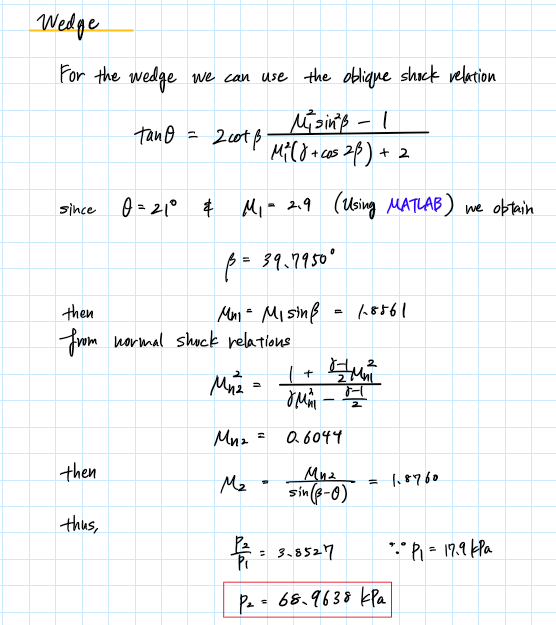 Wedge
For the wedge we can use the oblique shock relation
tanθ = 2cotβ (M₁²sin²β − 1) / (M₁²(γ + cos 2β) + 2)
since θ = 21° & M₁ = 2.9 (Using MATLAB) we obtain
β = 39.7950°
then Mn1 = M₁ sinβ = 1.8561
from normal shock relations
Mn2² = (1 + (γ-1)/2 Mn1²) / (γMn1² − (γ-1)/2)
Mn2 = 0.6044
then M₂ = Mn2 / sin(β-θ) = 1.8760
thus,
P₂/P₁ = 3.8527 ∵ P₁ = 17.9 kPa
P₂ = 68.9638 kPa